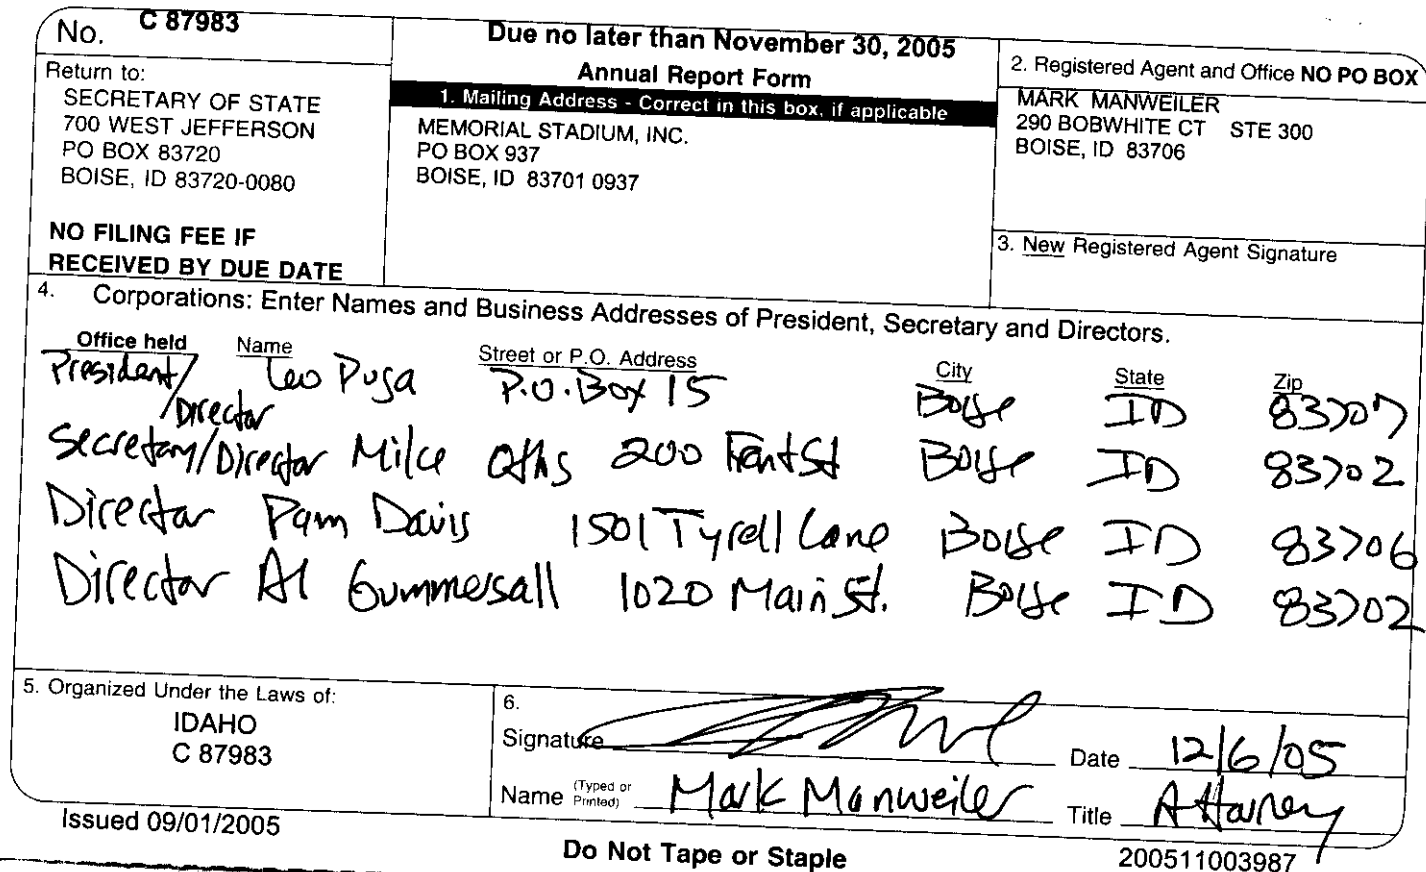 No. C 87983
Return to:
SECRETARY OF STATE
700 WEST JEFFERSON
PO BOX 83720
BOISE, ID 83720-0080
NO FILING FEE IF
RECEIVED BY DUE DATE
Due no later than November 30, 2005
Annual Report Form
1. Mailing Address - Correct in this box, if applicable
MEMORIAL STADIUM, INC.
PO BOX 937
BOISE, ID 83701 0937
2. Registered Agent and Office NO PO BOX
MARK MANWEILER
290 BOBWHITE CT STE 300
BOISE, ID 83706
3. New Registered Agent Signature
4. Corporations: Enter Names and Business Addresses of President, Secretary and Directors.
Office held Name Street or P.O. Address City State Zip
President/ Leo P.O. Box 15 Boise ID 83707
Director
Secretary/Director Mike 200 Front St Boise ID 83702
Director Pam Davis 1501 Tyrell Lane Boise ID 83706
Director Al Gummersall 1020 Main St. Boise ID 83702
5. Organized Under the Laws of:
IDAHO
C 87983
6.
Signature Date 12/6/05
Name (Typed or Printed) Mark Manweiler Title Attorney
Issued 09/01/2005
Do Not Tape or Staple
200511003987